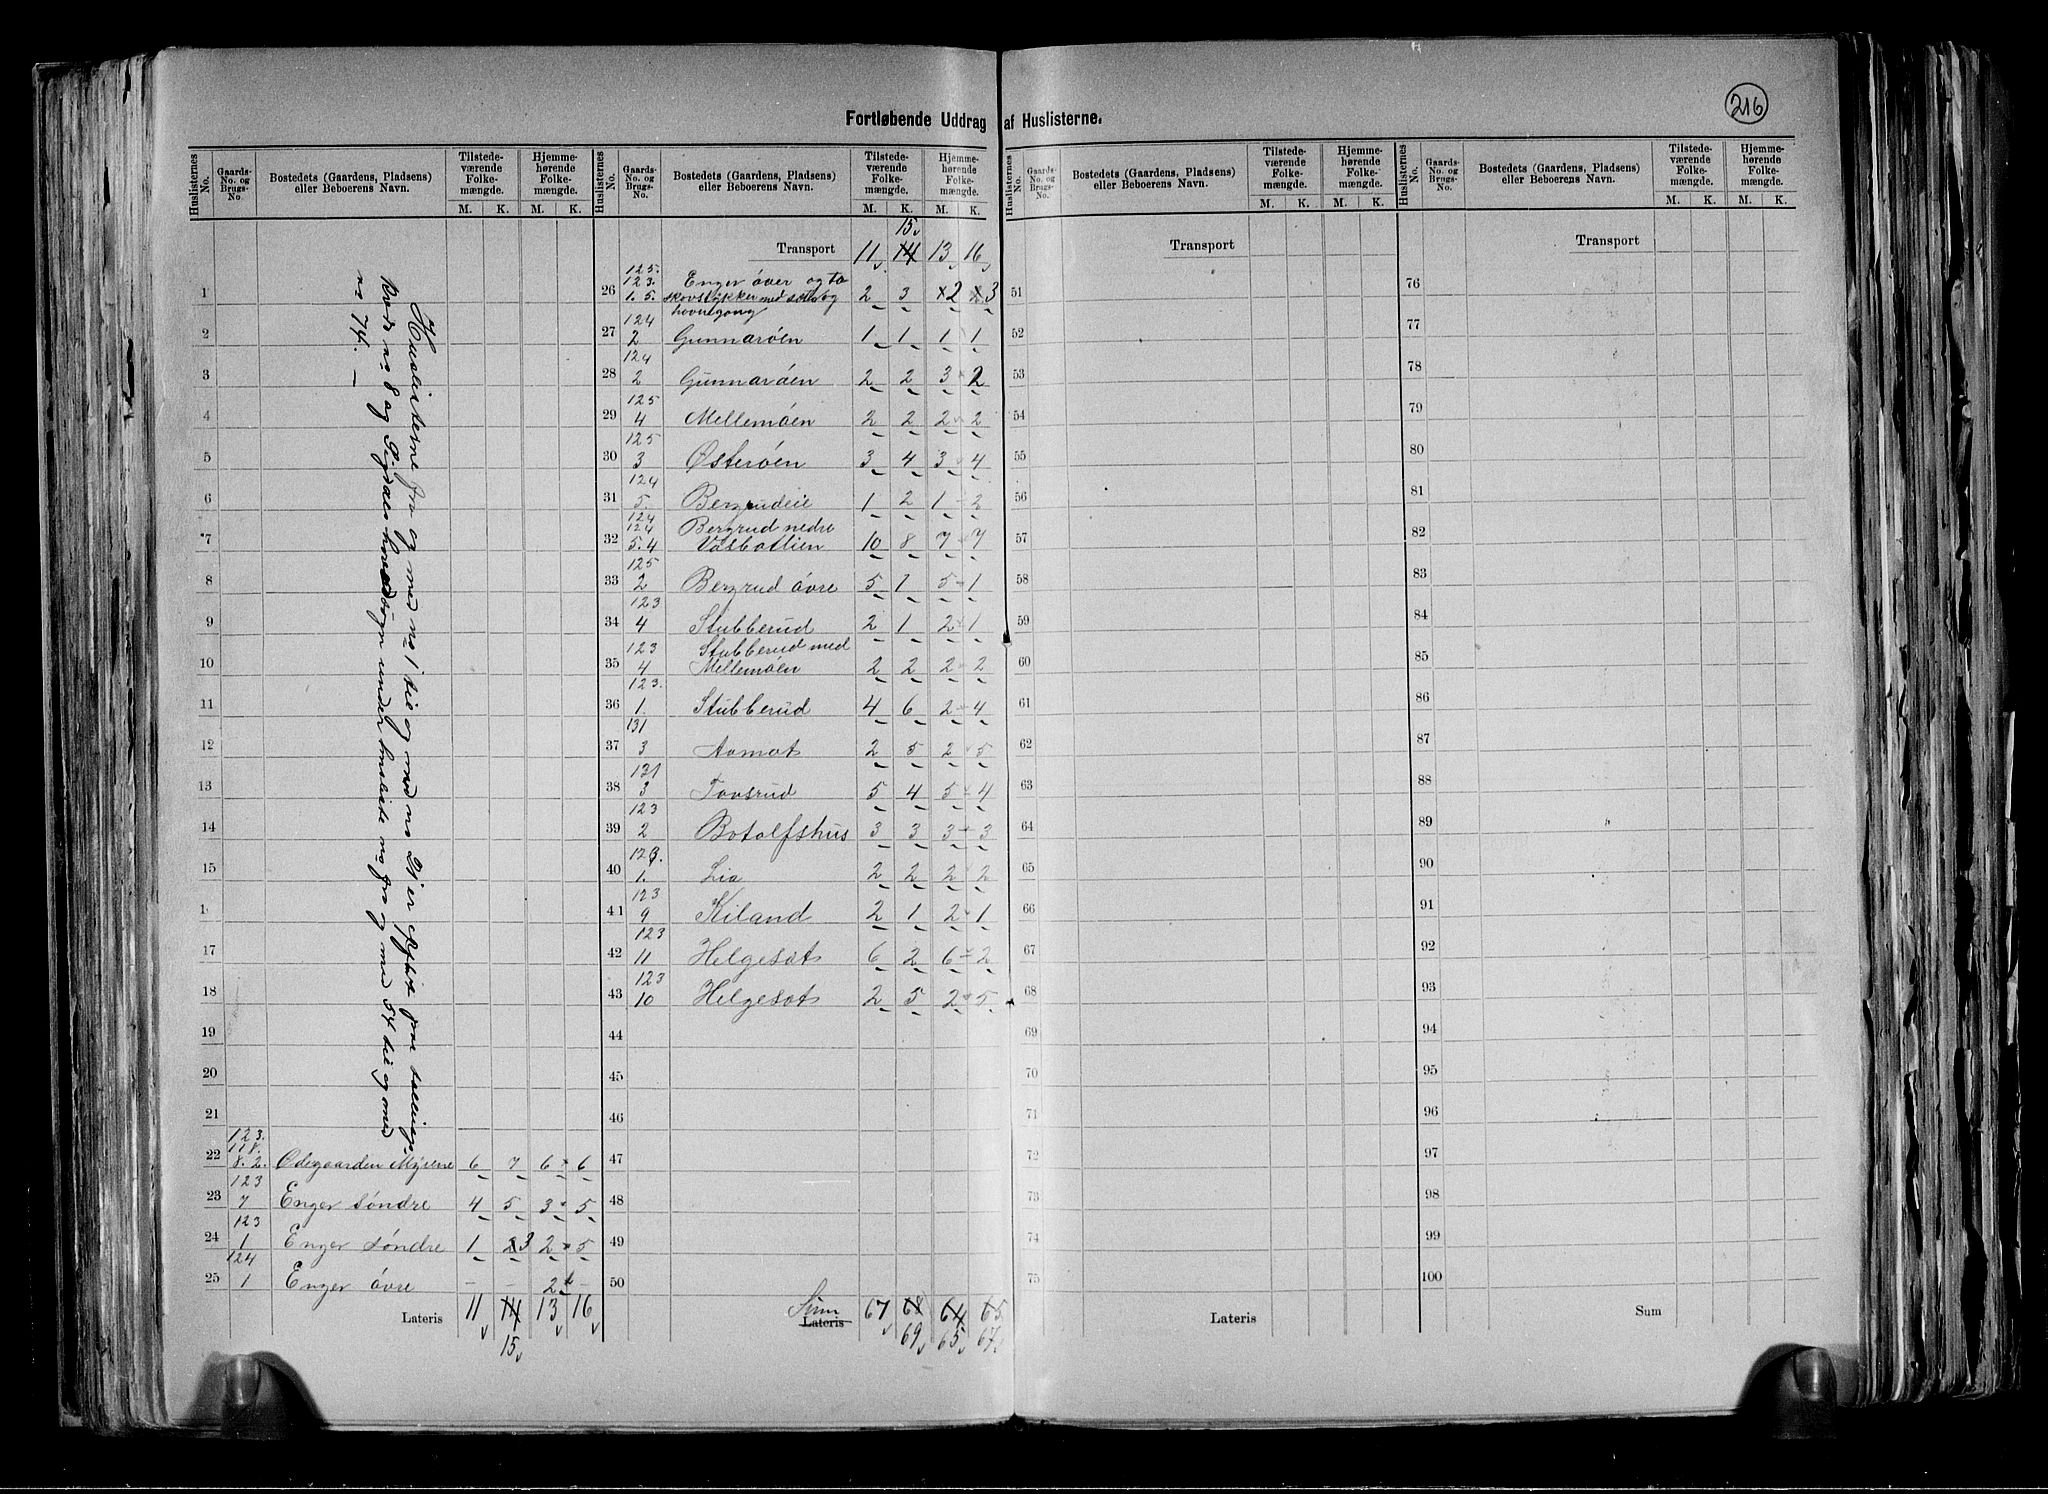 216
Fortløbende Uddrag af Huslisterne.
Huslisternes No. | Gaards-No. og Brugs-No. | Bostedets (Gaardens, Pladsens) eller Beboerens Navn. | Tilstedeværende Folkemængde. M. K. | Hjemmehørende Folkemængde. M. K.
Huslisterne fra og med no 1 til og med no 21 er afgit
Krøds no 8 og Sigdals under husliste no fra og med 54 til og med
no 74. —
1
2
3
4
5
6
7
8
9
10
11
12
13
14
15
1
17
18
19
20
21
22 123. 118. 8. 2. Ødegaarden Myrene 6 7 6 6
23 123 7 Enger søndre 4 5 3 5
24 123 1 Enger søndre 1 3 2 5
25 124 1 Enger øvre - - 2 -
Lateris 11 14 13 16
15
Huslisternes No. | Gaards-No. og Brugs-No. | Bostedets (Gaardens, Pladsens) eller Beboerens Navn. | Tilstedeværende Folkemængde. M. K. | Hjemmehørende Folkemængde. M. K.
15
Transport 11 14 13 16
26 125. 123. 1. 5. Enger øver og to skovstykker med 2 3 2 3
27 124 2 Gunnarøen 1 1 1 1
28 124 2 Gunnarøen 2 2 3 2
29 125 4 Mellemøen 2 2 2 2
30 125 3 Østerøen 3 4 3 4
31 124 5. Bergrudeie 1 2 1 2
32 124 124 5. 4 Bergrud nedre Vasbotlien 10 8 7 7
33 125 2 Bergrud øvre 5 1 5 1
34 123 4 Stubberud 2 1 2 1
35 123 4 Stubberud med Mellemøen 2 2 2 2
36 123. 1. Stubberud 4 6 2 4
37 131 3 Aamot 2 5 2 5
38 131 3 Tovsrud 5 4 5 4
39 123 2 Botolfshus 3 3 3 3
40 123. 1. Lia 2 2 2 2
41 123 9 Kiland 2 1 2 1
42 123 11 Helgesat 6 2 6 2
43 123 10 Helgesat 2 5 2 5
44
45
46
47
48
49
50
Sum Lateris 67 68 64 65
69 65 67
Huslisternes No. | Gaards-No. og Brugs-No. | Bostedets (Gaardens, Pladsens) eller Beboerens Navn. | Tilstedeværende Folkemængde. M. K. | Hjemmehørende Folkemængde. M. K.
Transport
51
52
53
54
55
56
57
58
59
60
61
62
63
64
65
66
67
68
69
70
71
72
73
74
75
Lateris
Huslisternes No. | Gaards-No. og Brugs-No. | Bostedets (Gaardens, Pladsens) eller Beboerens Navn. | Tilstedeværende Folkemængde. M. K. | Hjemmehørende Folkemængde. M. K.
Transport
76
77
78
79
80
81
82
83
84
85
86
87
88
89
90
91
92
93
94
95
96
97
98
99
100
Sum